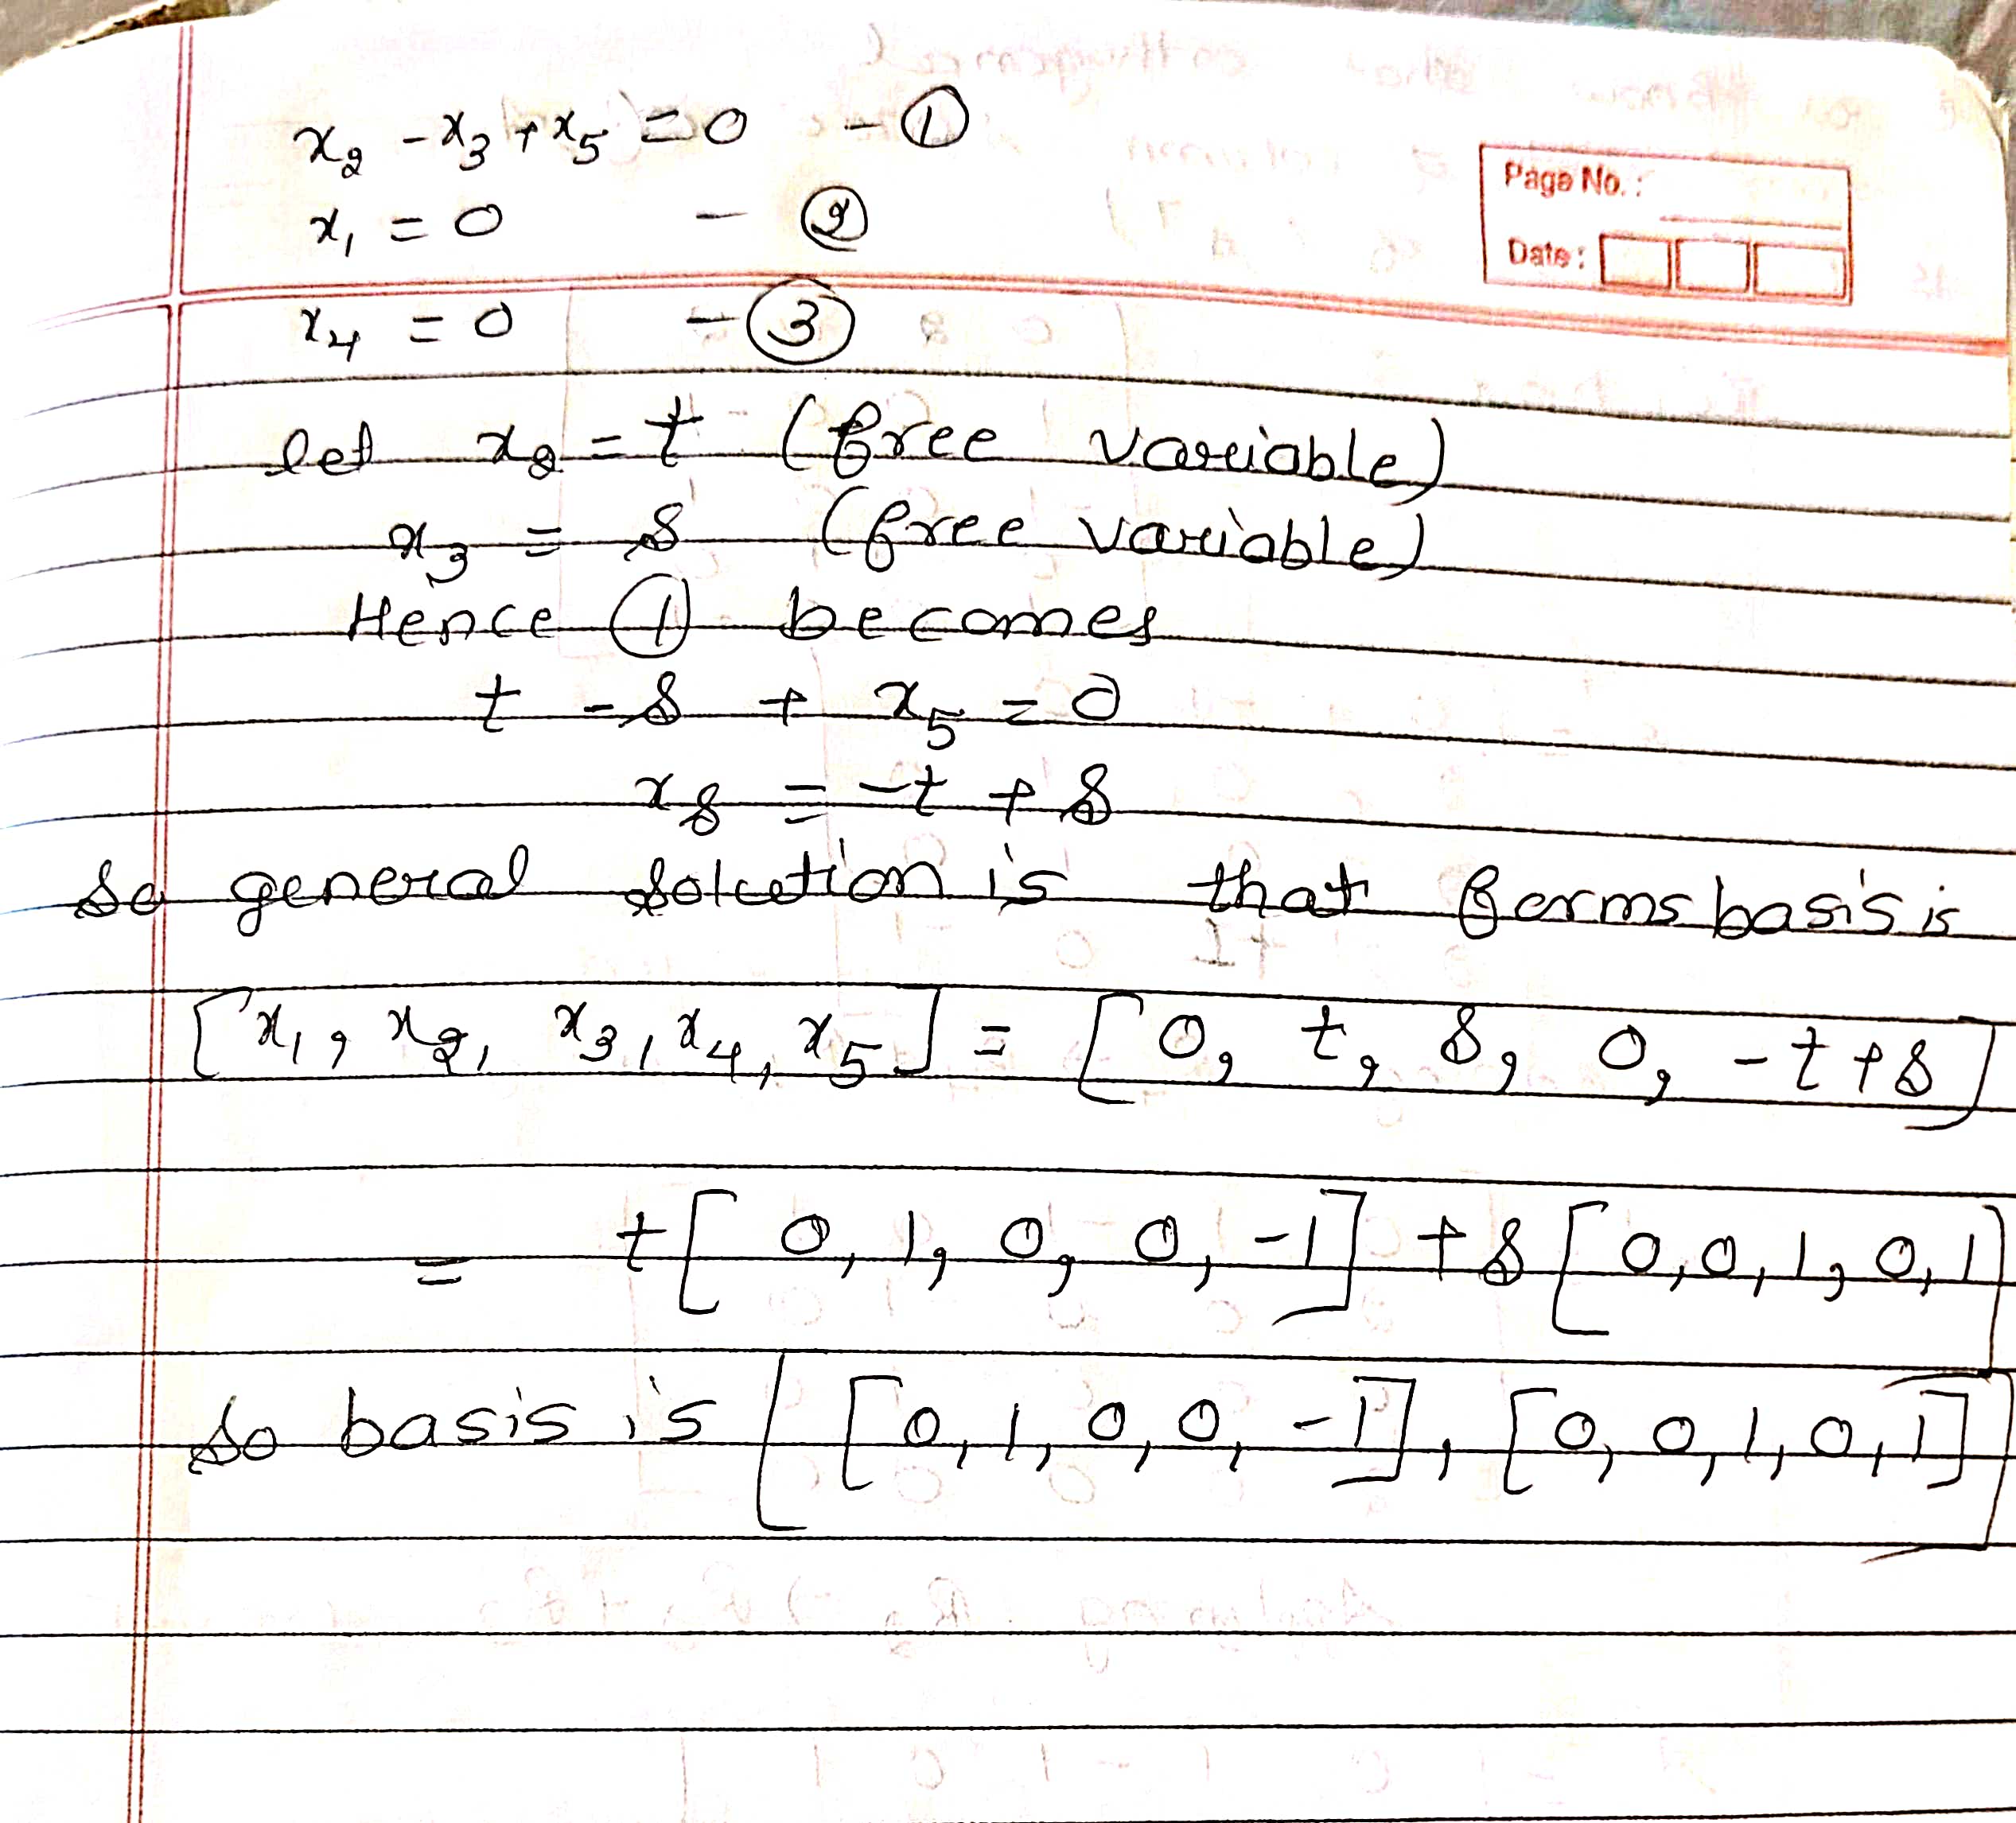 x₂ - x₃ + x₅ = 0 - ①
x₁ = 0 - ②
Page No. :
Date :
x₄ = 0 - ③
let x₂ = t (free variable)
x₃ = s (free variable)
Hence ① becomes
t - s + x₅ = 0
x₅ = -t + s
So general solution is that forms basis is
[x₁, x₂, x₃, x₄, x₅] = [0, t, s, 0, -t + s]
= t[0, 1, 0, 0, -1] + s[0, 0, 1, 0, 1]
So basis is [[0, 1, 0, 0, -1], [0, 0, 1, 0, 1]]